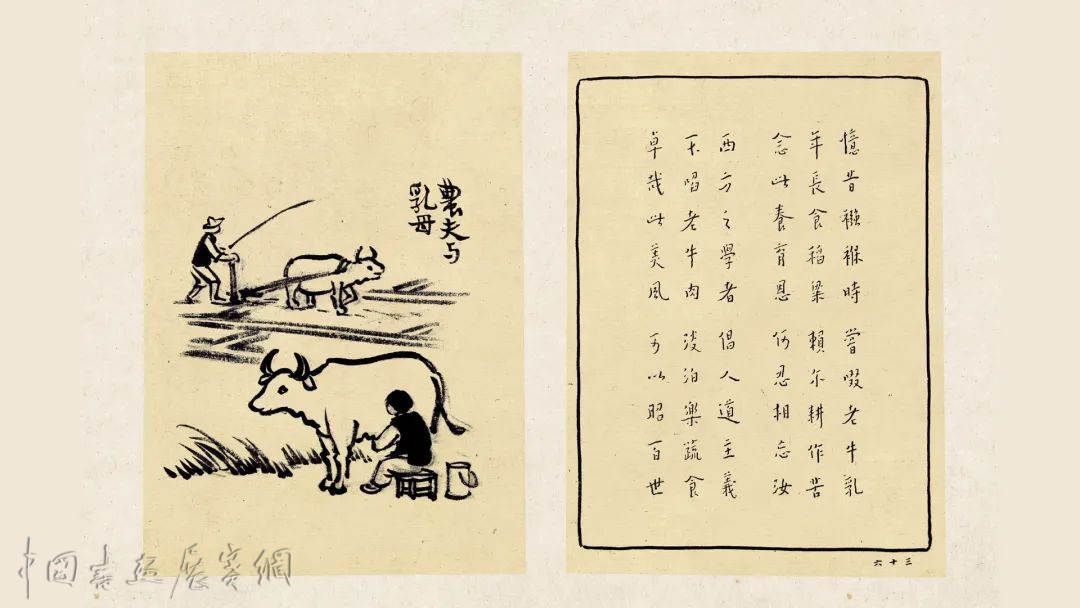 農夫与
乳母
憶昔襁褓時 嘗啜老牛乳
年長食稻粱 賴尔耕作苦
念此養育恩 何忍相忘汝
西方之學者 倡人道主義
不啗老牛肉 淡泊樂蔬食
卓哉此美風 可以昭百世
三十六
中國書法展賽網